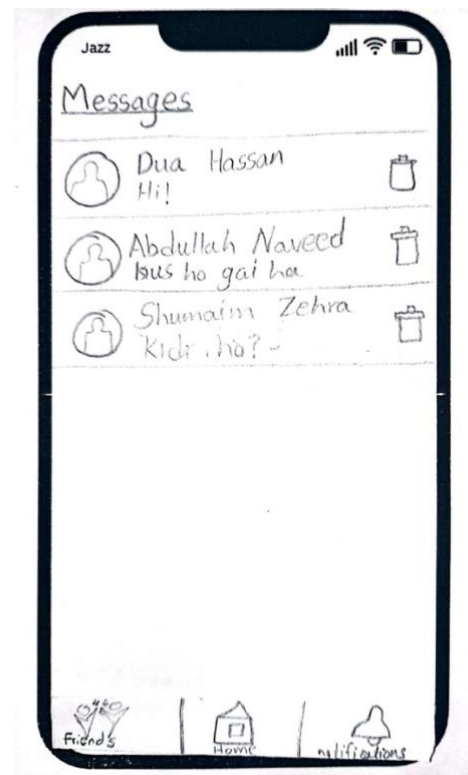 Jazz
Messages
Dua Hassan
Hi!
Abdullah Naveed
bus ho gai ha
Shumaim Zehra
Kidr ho?
Friends Home notifications